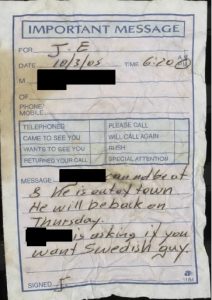 IMPORTANT MESSAGE
FOR J. E
DATE 10/3/05 TIME 6:20
M
OF
PHONE/
MOBILE
TELEPHONED PLEASE CALL
CAME TO SEE YOU WILL CALL AGAIN
WANTS TO SEE YOU RUSH
RETURNED YOUR CALL SPECIAL ATTENTION
MESSAGE can not be at
3 He is out of town
He will be back on
Thursday.
is asking if you
want Swedish guy.
SIGNED